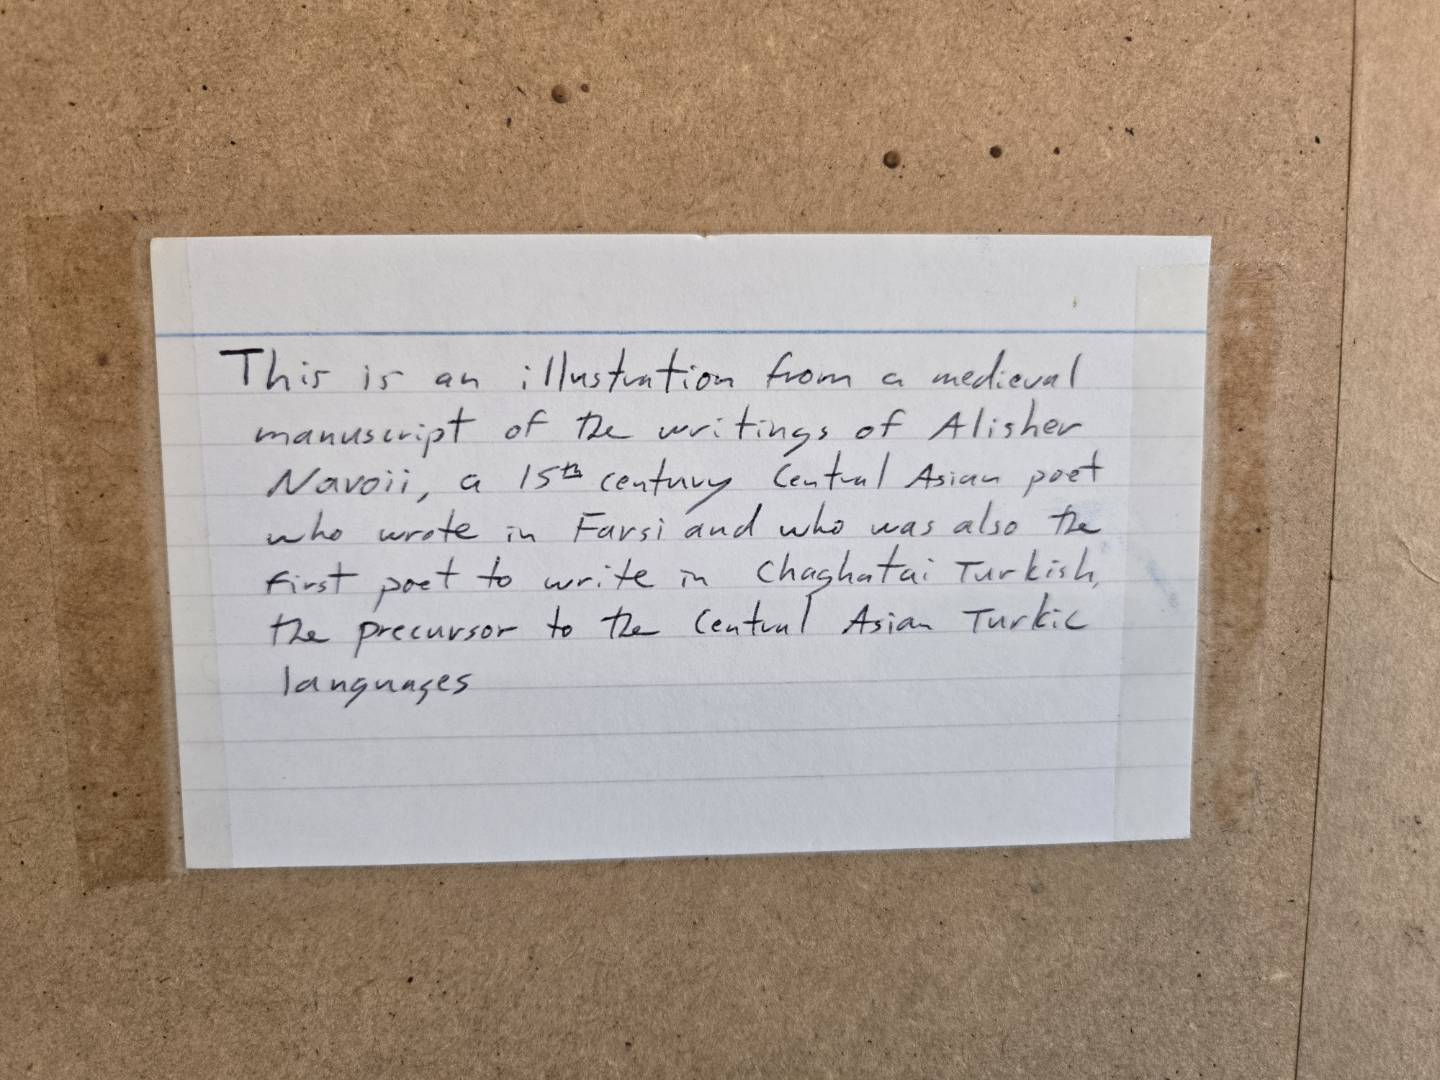 This is an illustration from a medieval
manuscript of the writings of Alisher
Navoii, a 15th century Central Asian poet
who wrote in Farsi and who was also the
first poet to write in Chaghatai Turkish,
the precursor to the Central Asian Turkic
languages